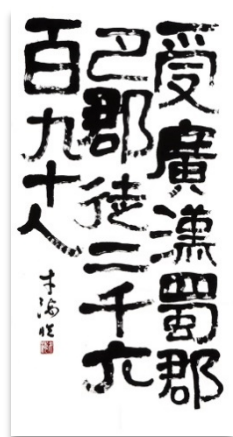 受廣漢蜀郡
巴郡徒二千六
百九十人
海